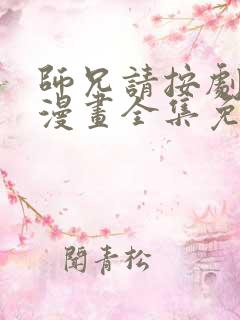 師兄請按劇
漫畫全集免
閱青松